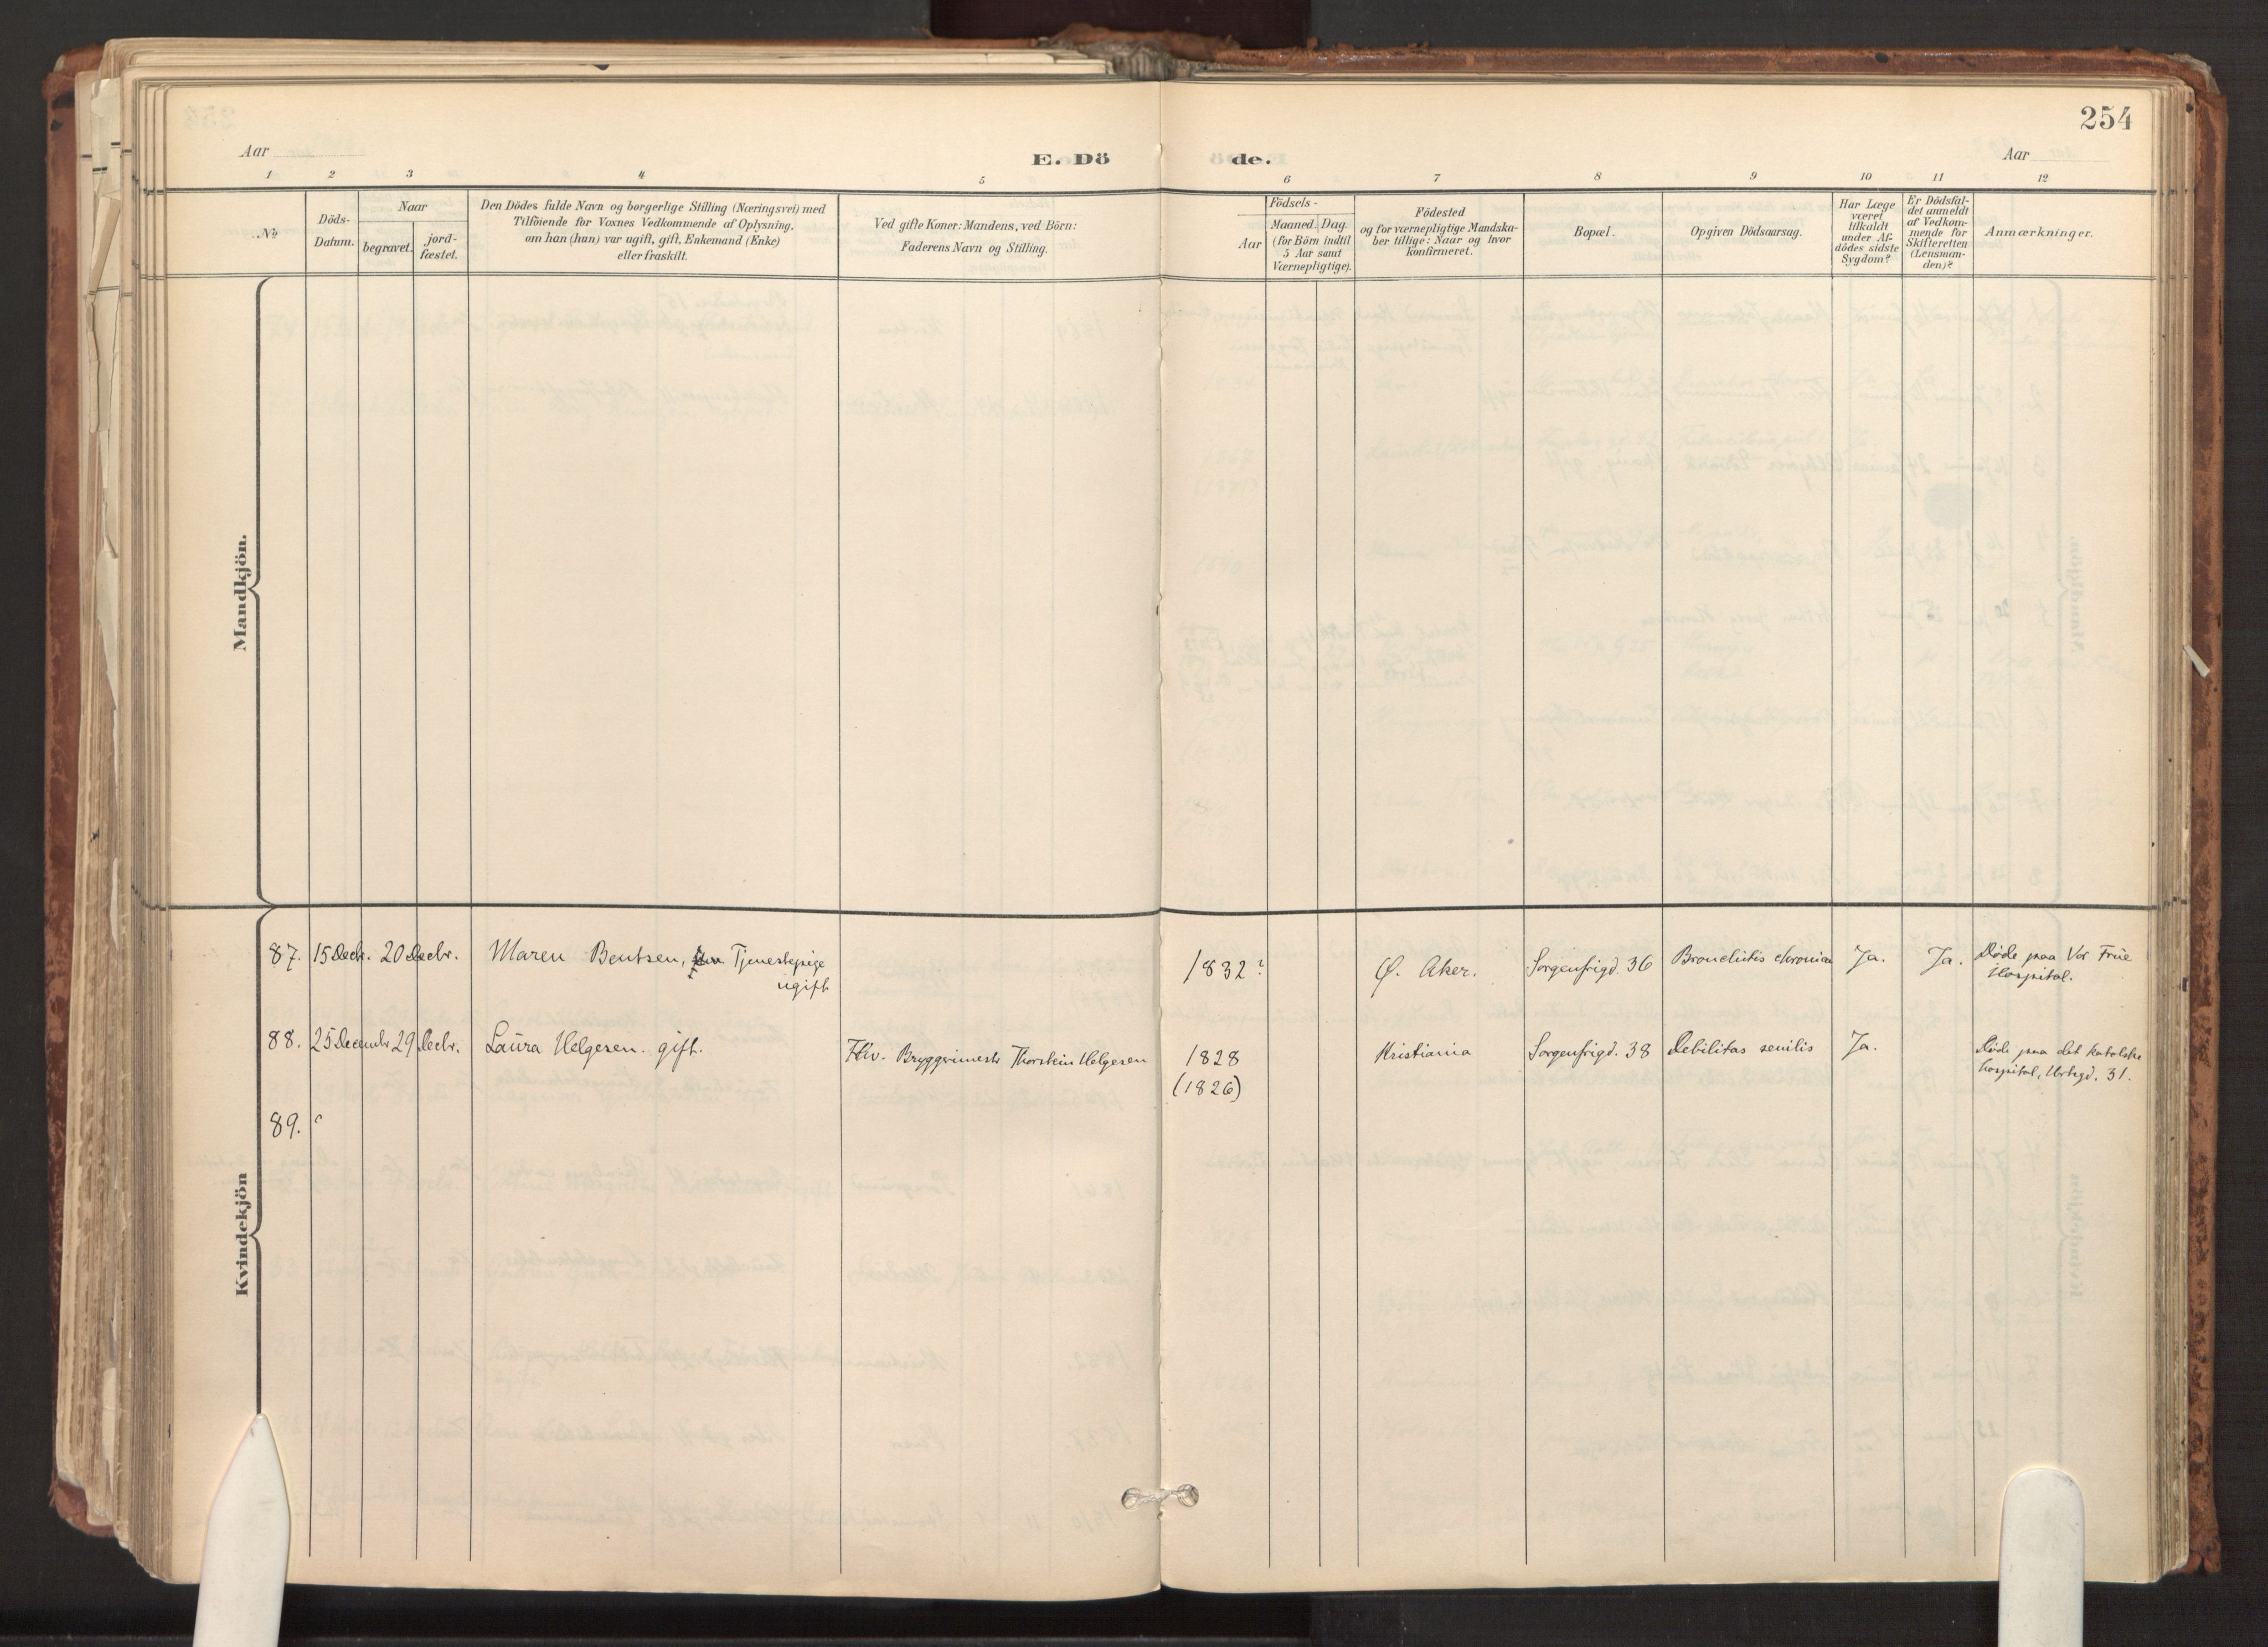 254
Aar
E. Dö
de.
Aar
1 2 3 4 5 6 7 8 9 10 11 12
No
Döds-
Datum.
Naar
begravet.
jord-
fæstet.
Den Dödes fulde Navn og borgerlige Stilling (Næringsvei) med
Tilföiende for Voxnes Vedkommende af Oplysning,
om han (hun) var ugift, gift, Enkemand (Enke)
eller fraskilt.
Ved gifte Koner: Mandens, ved Börn:
Faderens Navn og Stilling.
Födsels-
Aar
Maaned. Dag.
(for Börn indtil
5 Aar samt
Værnepligtige).
Födested
og for værnepligtige Mandska-
ber tillige: Naar og hvor
konfirmeret.
Bopæl.
Opgiven Dödsaarsag.
Har Læge
været
tilkaldt
under Af-
dödes sidste
Sygdom?
Er Dödsfal-
det anmeldt
af Vedkom-
mende for
Skifteretten
(Lensman-
den)?
Anmærkninger.
Mandkjön.
Kvindekjön
87. 15 Decbr. 20 Decbr. Maren Bentsen, Tjenestepige
ugift
1832? Ø. Aker. Sorgenfrigd. 36 Bronchitis chronica Ja. Ja. Døde paa Vor Frue
Hospital.
88. 25 Decembr 29 Decbr. Laura Helgesen. gift. Fhv. Bryggrimestr Thorstein Helgesen
1828
(1826)
Kristiania Sorgenfrigd. 38 Debilitas senilis Ja. Døde paa det katolske
hospital, Urtegd. 31.
89.